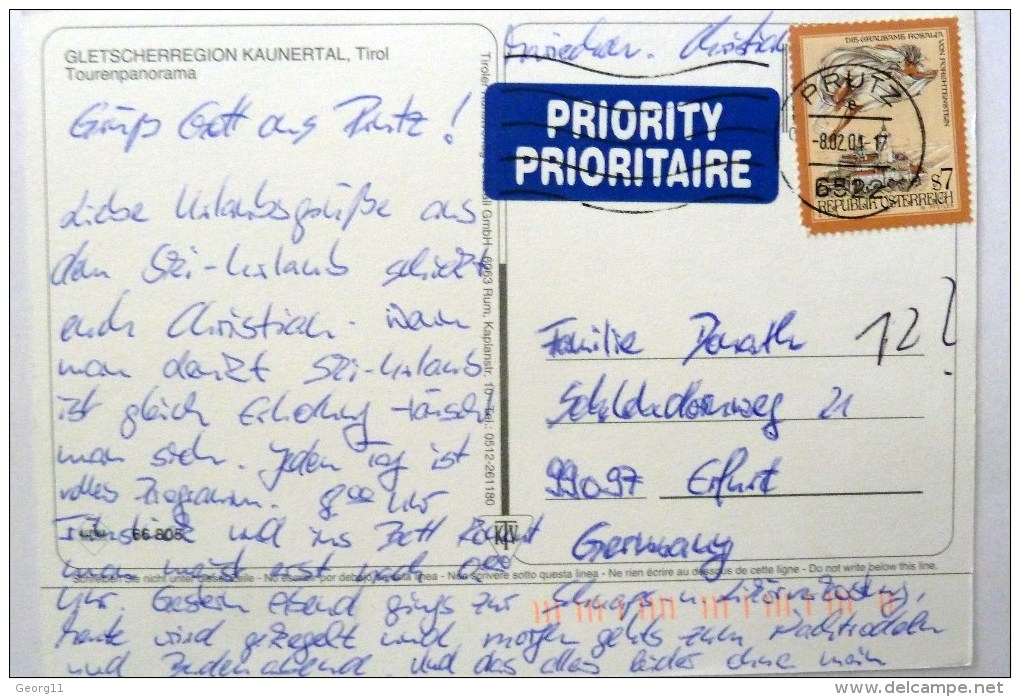 GLETSCHERREGION KAUNERTAL, Tirol
Tourenpanorama
Grüß Gott aus Prutz!
Liebe Urlaubsgrüße aus
dem Ski-Urlaub schickt
euch Christian. Wenn
man denkt Ski-Urlaub
ist gleich Erholung täuscht
man sich. Jeden Tag ist
volles Programm. 8.00 Uhr
Frühstück und ins Bett kommt
man meist erst nach 0.00
Uhr. Gestern Abend gings zur Schnaps- u. Likörverkostung,
heute wird gekegelt und morgen gehts zum Nachtrodeln
und Bundesabend. und das alles leider ohne mein
66 805
Schreiben Sie nicht unter diese Zeile - No escriban por debajo de esta línea - Non scrivere sotto questa linea - Ne rien écrire au dessous de cette ligne - Do not write below this line.
GmbH, 6063 Rum, Kaplanstr. 10, Tel.: 0512-261180
Christian
PRIORITY
PRIORITAIRE
DIE GRAUSAME ROSALIA
VON FORCHTENSTEIN
S7
REPUBLIK ÖSTERREICH
PRUTZ
-8.02.01-17
6522
Familie Donath 12?
21
99097 Erfurt
Germany
KTV
Georg11
delcampe.net